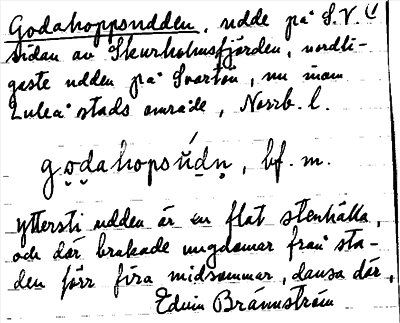 Godahoppsudden, udde på S.V.
sidan av Skurholmsfjärden, nordli-
gaste udden på Svartön, nu inom
Luleå stads område, Norrb. l.
go̤da̤hopsúdn̥, bf. m.
yttersta udden är en flat stenhälla,
och där brukade ungdomar från sta-
den förr fira midsommar, dansa där.
Edvin Brännström